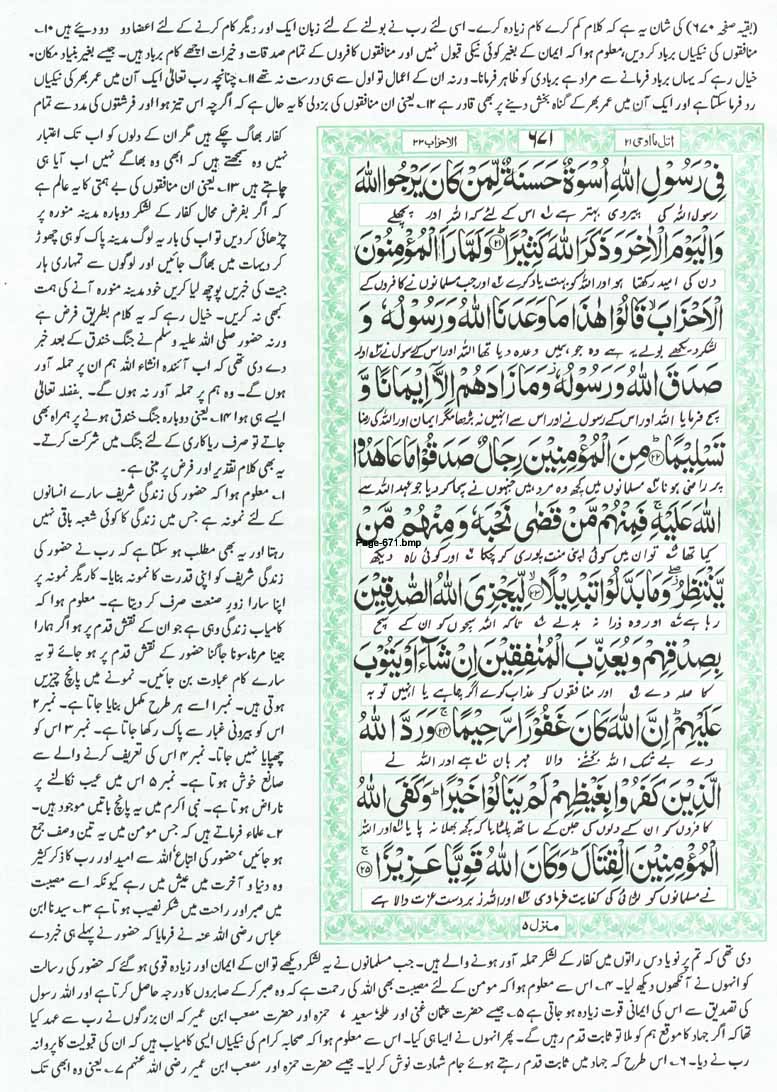 (بقیہ صفحہ ۶۷۰) کی شان یہ ہے کہ کلام کم کرے کام زیادہ کرے۔ اسی لئے رب نے بولنے کے لئے زبان ایک اور دیگر کام کرنے کے لئے اعضا دو دو دیئے ہیں ۱۰۔
منافقوں کی نیکیاں برباد کر دیں، معلوم ہوا کہ ایمان کے بغیر کوئی نیکی قبول نہیں اور منافقوں کافروں کے تمام صدقات و خیرات اچھے کام برباد ہیں۔ جیسے بغیر بنیاد مکان۔
خیال رہے کہ یہاں برباد فرمانے سے مراد ہے بربادی کو ظاہر فرمانا۔ ورنہ ان کے اعمال تو اول سے ہی درست نہ تھے ۱۱۔ چنانچہ رب تعالیٰ ایک آن میں عمر بھر کی نیکیاں
رد فرما سکتا ہے اور ایک آن میں عمر بھر کے گناہ بخش دینے پر بھی قادر ہے ۱۲۔ یعنی ان منافقوں کی بزدلی کا یہ حال ہے کہ اگرچہ اس تیز ہوا اور فرشتوں کی مدد سے تمام
کفار بھاگ چکے ہیں مگر ان کے دلوں کو اب تک اعتبار
نہیں وہ سمجھتے ہیں کہ ابھی وہ بھاگے نہیں اب آیا ہی
چاہتے ہیں ۱۳۔ یعنی ان منافقوں کی بے ہمتی کا یہ عالم ہے
کہ اگر بفرض محال کفار کے لشکر دوبارہ مدینہ منورہ پر
چڑھائی کر دیں تو اب کی بار یہ لوگ مدینہ پاک کو ہی چھوڑ
کر دیہات میں بھاگ جائیں اور لوگوں سے تمہاری ہار
جیت کی خبریں پوچھ لیا کریں خود مدینہ منورہ آنے کی ہمت
کبھی نہ کریں۔ خیال رہے کہ یہ کلام بطریق فرض ہے
ورنہ حضور صلی اللہ علیہ وسلم نے جنگ خندق کے بعد خبر
دے دی تھی کہ اب آئندہ انشاء اللہ ہم ان پر حملہ آور
ہوں گے۔ وہ ہم پر حملہ آور نہ ہوں گے۔ بفضلہ تعالیٰ
ایسے ہی ہوا ۱۴۔ یعنی دوبارہ جنگ خندق ہونے پر ہمراہ بھی
جاتے تو صرف ریاکاری کے لئے جنگ میں شرکت کرتے۔
یہ بھی کلام تقدیر اور فرض پر مبنی ہے۔
۱۔ معلوم ہوا کہ حضور کی زندگی شریف سارے انسانوں
کے لئے نمونہ ہے جس میں زندگی کا کوئی شعبہ باقی نہیں
رہتا اور یہ بھی مطلب ہو سکتا ہے کہ رب نے حضور کی
زندگی شریف کو اپنی قدرت کا نمونہ بنایا۔ کاریگر نمونہ پر
اپنا سارا زور صنعت صرف کر دیتا ہے۔ معلوم ہوا کہ
کامیاب زندگی وہی ہے جو ان کے نقش قدم پر ہو اگر ہمارا
جینا مرنا، سونا جاگنا حضور کے نقش قدم پر ہو جائے تو یہ
سارے کام عبادت بن جائیں۔ نمونے میں پانچ چیزیں
ہوتی ہیں۔ نمبر۱ اسے ہر طرح مکمل بنایا جاتا ہے۔ نمبر ۲
اس کو بیرونی غبار سے پاک رکھا جاتا ہے۔ نمبر ۳ اس کو
چھپایا نہیں جاتا۔ نمبر ۴ اس کی تعریف کرنے والے سے
صانع خوش ہوتا ہے۔ نمبر ۵ اس میں عیب نکالنے پر
ناراض ہوتا ہے۔ نبی اکرم میں یہ پانچ باتیں موجود ہیں۔
۲۔ علماء فرماتے ہیں کہ جس مومن میں یہ تین وصف جمع
ہو جائیں' حضور کی اتباع' اللہ سے امید اور رب کا ذکر کثیر
وہ دنیا و آخرت میں عیش میں رہے کیونکہ اسے مصیبت
میں صبر اور راحت میں شکر نصیب ہوتا ہے ۳۔ سیدنا ابن
عباس رضی اللہ عنہ نے فرمایا کہ حضور نے پہلے ہی خبر دے
اتل مآ اوحی ۲۱ ۶۷۱ الاحزاب ۳۳
فِیْ رَسُوْلِ اللهِ اُسْوَةٌ حَسَنَةٌ لِّمَنْ كَانَ یَرْجُوا اللهَ
رسول اللہ کی پیروی بہتر ہے اس کے لئے کہ اللہ اور پچھلے
وَالْیَوْمَ الْاٰخِرَ وَذَكَرَ اللهَ كَثِیْرًا ﴿۲۱﴾ وَلَمَّا رَاَ الْمُؤْمِنُوْنَ
دن کی امید رکھتا ہو اور اللہ کو بہت یاد کرے اور جب مسلمانوں نے کافروں کے
الْاَحْزَابَ قَالُوْا هٰذَا مَا وَعَدَنَا اللهُ وَرَسُوْلُهٗ وَ
لشکر دیکھے بولے یہ ہے وہ جو ہمیں وعدہ دیا تھا اللہ اور اس کے رسول نے اور
صَدَقَ اللهُ وَرَسُوْلُهٗ وَمَا زَادَهُمْ اِلَّاۤ اِیْمَانًا وَّ
سچ فرمایا اللہ اور اس کے رسول نے اور اس سے انہیں نہ بڑھا مگر ایمان اور اللہ کی رضا
تَسْلِیْمًا ﴿۲۲﴾ مِنَ الْمُؤْمِنِیْنَ رِجَالٌ صَدَقُوْا مَا عَاهَدُوا
پر راضی ہونا مسلمانوں میں کچھ وہ مرد ہیں جنہوں نے سچا کر دیا جو عہد اللہ سے
اللهَ عَلَیْهِ فَمِنْهُمْ مَّنْ قَضٰی نَحْبَهٗ وَمِنْهُمْ مَّنْ
Page-671.bmp
کیا تھا تو ان میں کوئی اپنی منت پوری کر چکا اور کوئی راہ دیکھ
یَّنْتَظِرُ وَمَا بَدَّلُوْا تَبْدِیْلًا ﴿۲۳﴾ لِّیَجْزِیَ اللهُ الصّٰدِقِیْنَ
رہا ہے اور وہ ذرا نہ بدلے تاکہ اللہ سچوں کو ان کے سچ
بِصِدْقِهِمْ وَیُعَذِّبَ الْمُنٰفِقِیْنَ اِنْ شَآءَ اَوْ یَتُوْبَ
کا صلہ دے اور منافقوں کو عذاب کرے اگر چاہے یا انہیں توبہ
عَلَیْهِمْ اِنَّ اللهَ كَانَ غَفُوْرًا رَّحِیْمًا ﴿۲۴﴾ وَرَدَّ اللهُ
دے بے شک اللہ بخشنے والا مہربان ہے اور اللہ نے
الَّذِیْنَ كَفَرُوْا بِغَیْظِهِمْ لَمْ یَنَالُوْا خَیْرًا وَكَفَی اللهُ
کافروں کو ان کے دلوں کی جلن کے ساتھ پلٹایا کہ کچھ بھلا نہ پایا اور اللہ
الْمُؤْمِنِیْنَ الْقِتَالَ وَكَانَ اللهُ قَوِیًّا عَزِیْزًا ﴿۲۵﴾
نے مسلمانوں کو لڑائی کی کفایت فرما دی اور اللہ زبردست عزت والا ہے
منزل ۵
دی تھی کہ تم پر نو یا دس راتوں میں کفار کے لشکر حملہ آور ہونے والے ہیں۔ جب مسلمانوں نے یہ لشکر دیکھے تو ان کے ایمان اور زیادہ قوی ہو گئے کہ حضور کی رسالت
کو انہوں نے آنکھوں دیکھ لیا۔ ۴۔ اس سے معلوم ہوا کہ مومن کے لئے مصیبت بھی اللہ کی رحمت ہے کہ وہ صبر کر کے صابروں کا درجہ حاصل کرتا ہے اور اللہ رسول
کی تصدیق سے اس کی ایمانی قوت زیادہ ہو جاتی ہے ۵۔ جیسے حضرت عثمان غنی اور طلحہ' سعید ' حمزہ اور حضرت مصعب ابن عمیر کہ ان بزرگوں نے رب سے عہد کیا
تھا کہ اگر جہاد کا موقع ہم کو ملا تو ثابت قدم رہیں گے۔ پھر انہوں نے ایسا ہی کیا۔ اس سے معلوم ہوا کہ صحابہ کرام کی نیکیاں ایسی کامیاب ہیں کہ ان کی قبولیت کا پروانہ
رب نے دیا۔ ۶۔ اس طرح کہ جہاد میں ثابت قدم رہتے ہوئے جام شہادت نوش کر لیا۔ جیسے حضرت حمزہ اور مصعب ابن عمیر رضی اللہ عنہم ۷۔ یعنی وہ ابھی تک